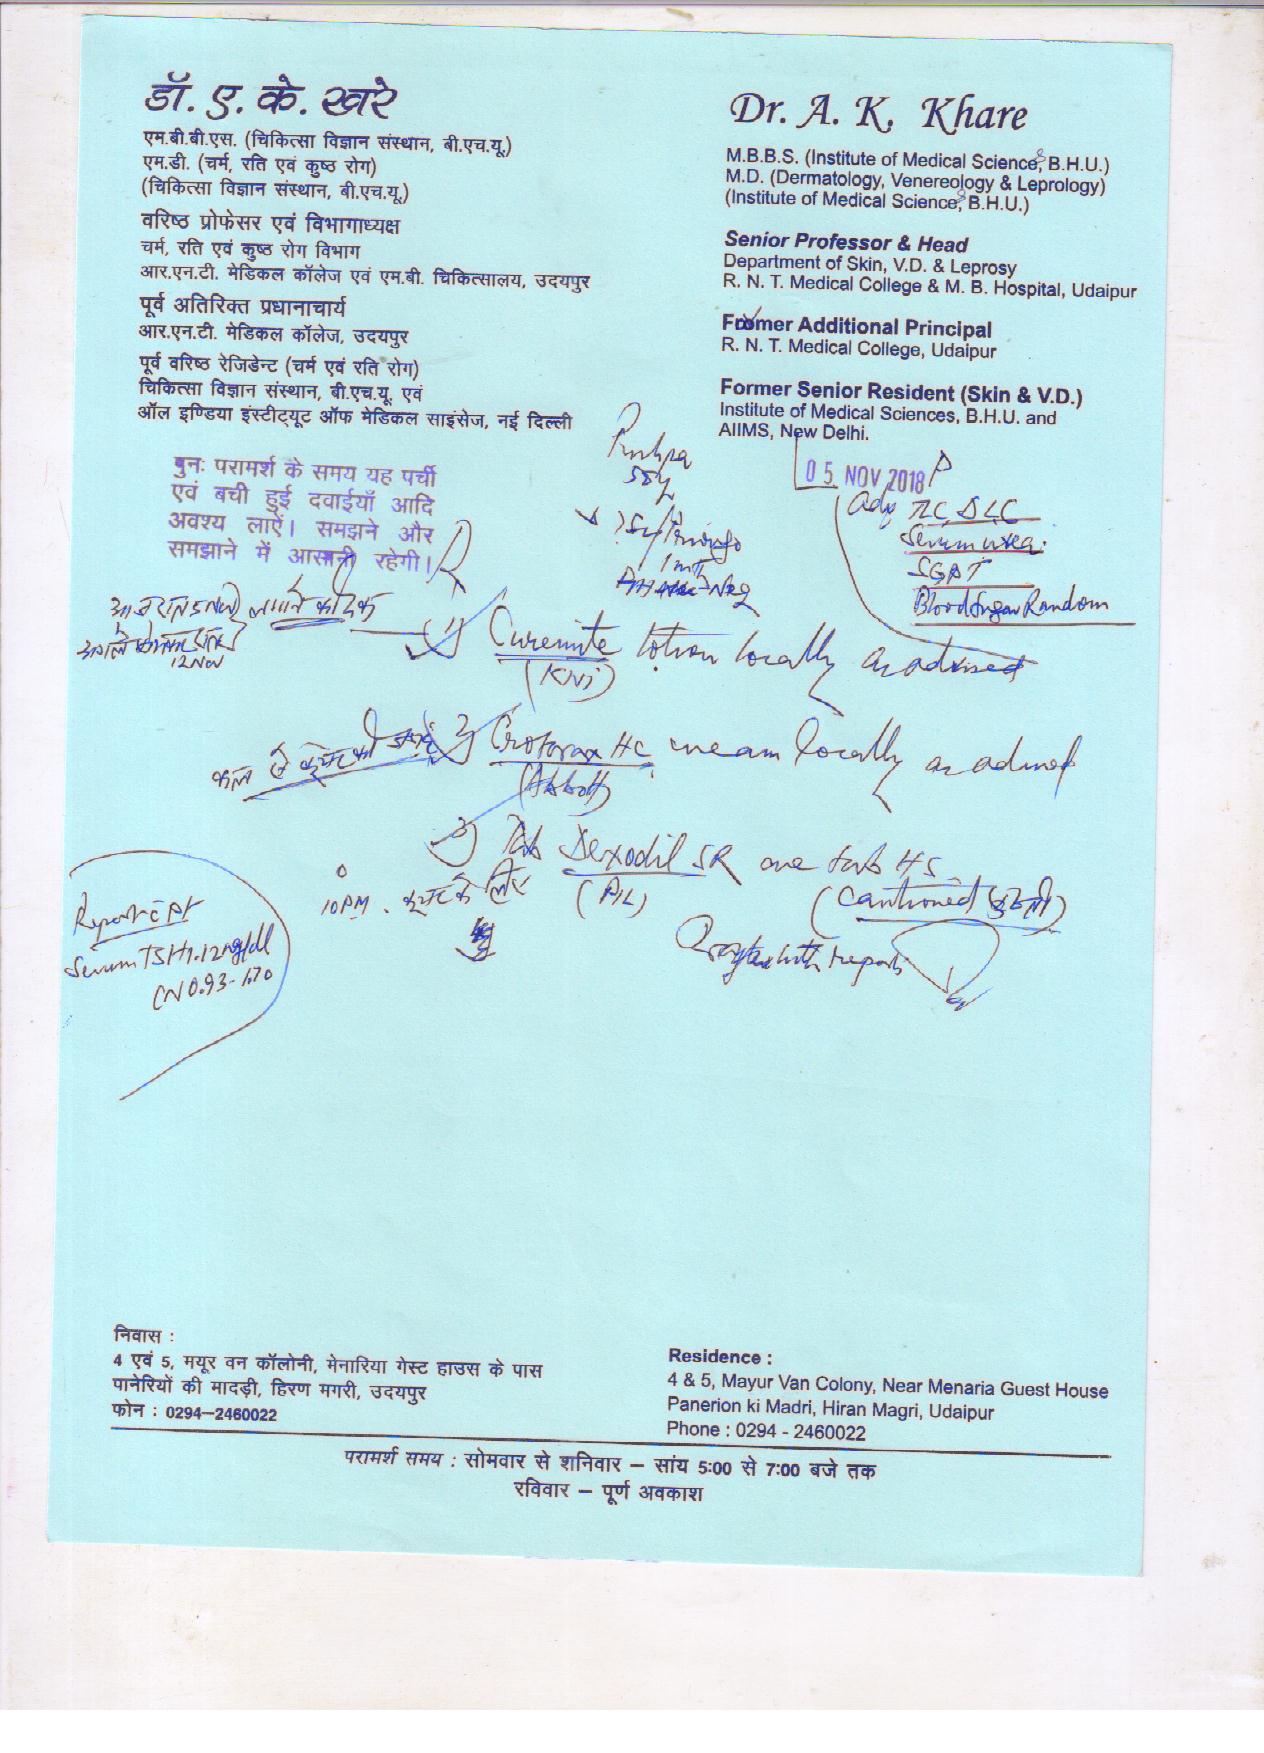 डॉ. ए. के. खरे
एम.बी.बी.एस. (चिकित्सा विज्ञान संस्थान, बी.एच.यू.)
एम.डी. (चर्म, रति एवं कुष्ठ रोग)
(चिकित्सा विज्ञान संस्थान, बी.एच.यू.)
वरिष्ठ प्रोफेसर एवं विभागाध्यक्ष
चर्म, रति एवं कुष्ठ रोग विभाग
आर.एन.टी. मेडिकल कॉलेज एवं एम.बी. चिकित्सालय, उदयपुर
पूर्व अतिरिक्त प्रधानाचार्य
आर.एन.टी. मेडिकल कॉलेज, उदयपुर
पूर्व वरिष्ठ रेजिडेन्ट (चर्म एवं रति रोग)
चिकित्सा विज्ञान संस्थान, बी.एच.यू. एवं
ऑल इण्डिया इंस्टीट्यूट ऑफ मेडिकल साइंसेज, नई दिल्ली
Dr. A. K. Khare
M.B.B.S. (Institute of Medical Science, B.H.U.)
M.D. (Dermatology, Venereology & Leprology)
(Institute of Medical Science, B.H.U.)
Senior Professor & Head
Department of Skin, V.D. & Leprosy
R. N. T. Medical College & M. B. Hospital, Udaipur
Former Additional Principal
R. N. T. Medical College, Udaipur
Former Senior Resident (Skin & V.D.)
Institute of Medical Sciences, B.H.U. and
AIIMS, New Delhi.
पुनः परामर्श के समय यह पर्ची
एवं बची हुई दवाईयाँ आदि
अवश्य लाऐं। समझने और
समझाने में आसानी रहेगी।
05 NOV 2018
TLC, DLC
Serum urea
SGPT
Blood Sugar Random
R
12 Nov
1) lotion locally as advised
2) Crotorax HC cream locally as advised
(Abbott)
3) Tab SR one tab HS
10 PM
Serum TSH 1.12
0.93-1.70
with report
निवास :
4 एवं 5, मयूर वन कॉलोनी, मेनारिया गेस्ट हाउस के पास
पानेरियों की मादड़ी, हिरण मगरी, उदयपुर
फोन : 0294–2460022
Residence :
4 & 5, Mayur Van Colony, Near Menaria Guest House
Panerion ki Madri, Hiran Magri, Udaipur
Phone : 0294 - 2460022
परामर्श समय : सोमवार से शनिवार – सांय 5:00 से 7:00 बजे तक
रविवार – पूर्ण अवकाश